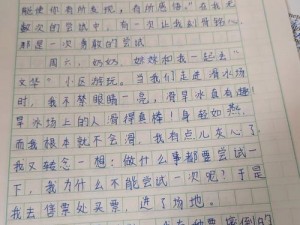 能使你有所发现，有所感悟。在我无
数次的尝试中，有一次让我刻骨铭心，
那是一次勇敢的尝试
周六，奶奶、姐姐和我一起去“
文华”小区游玩。当我们走进滑冰场
时，我不禁眼睛一亮，滑旱冰真有趣！
旱冰场上的人滑得真棒！身轻如燕，
而我根本就不会滑，我有点儿灰心了
我又转念一想：做什么事都要尝试一
下，我为什么不能尝试一次呢？于是
我去售票处买票，进了场地。